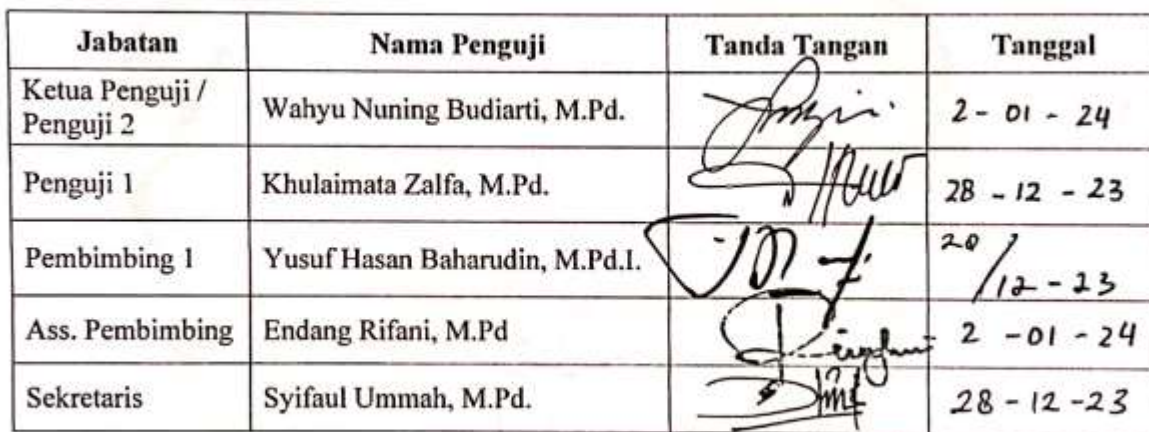 Jabatan Nama Penguji Tanda Tangan Tanggal
Ketua Penguji /
Penguji 2 Wahyu Nuning Budiarti, M.Pd. 2 - 01 - 24
Penguji 1 Khulaimata Zalfa, M.Pd. 28 - 12 - 23
Pembimbing 1 Yusuf Hasan Baharudin, M.Pd.I. /12 - 23
Ass. Pembimbing Endang Rifani, M.Pd 2 - 01 - 24
Sekretaris Syifaul Ummah, M.Pd. 28 - 12 - 23